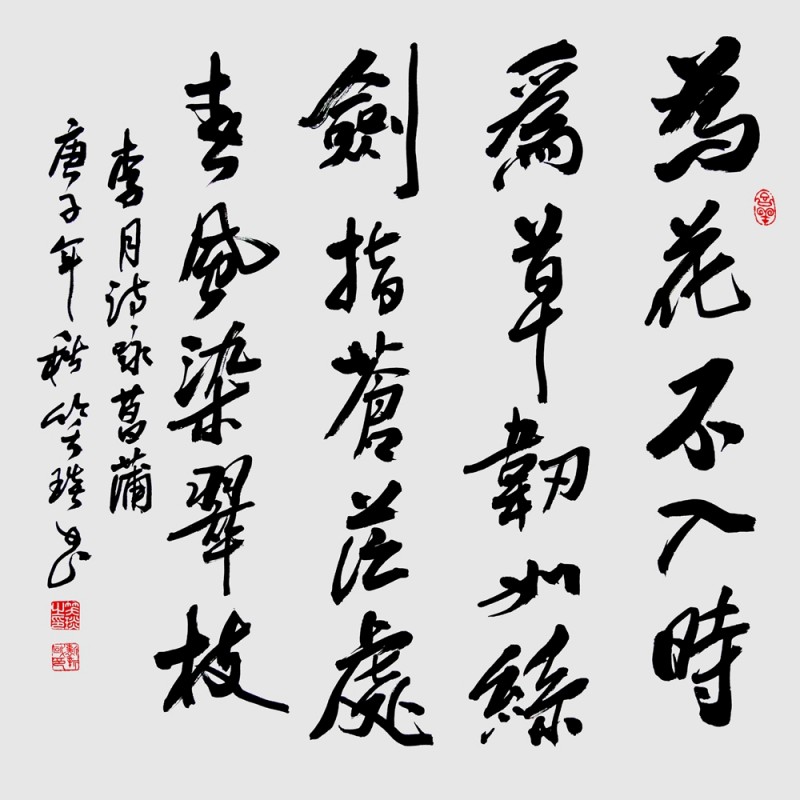 為花不入時
爲草韌如絲
劍指蒼茫處
春風染翠枝
李月詩咏菖蒲
庚子年秋笑琰书